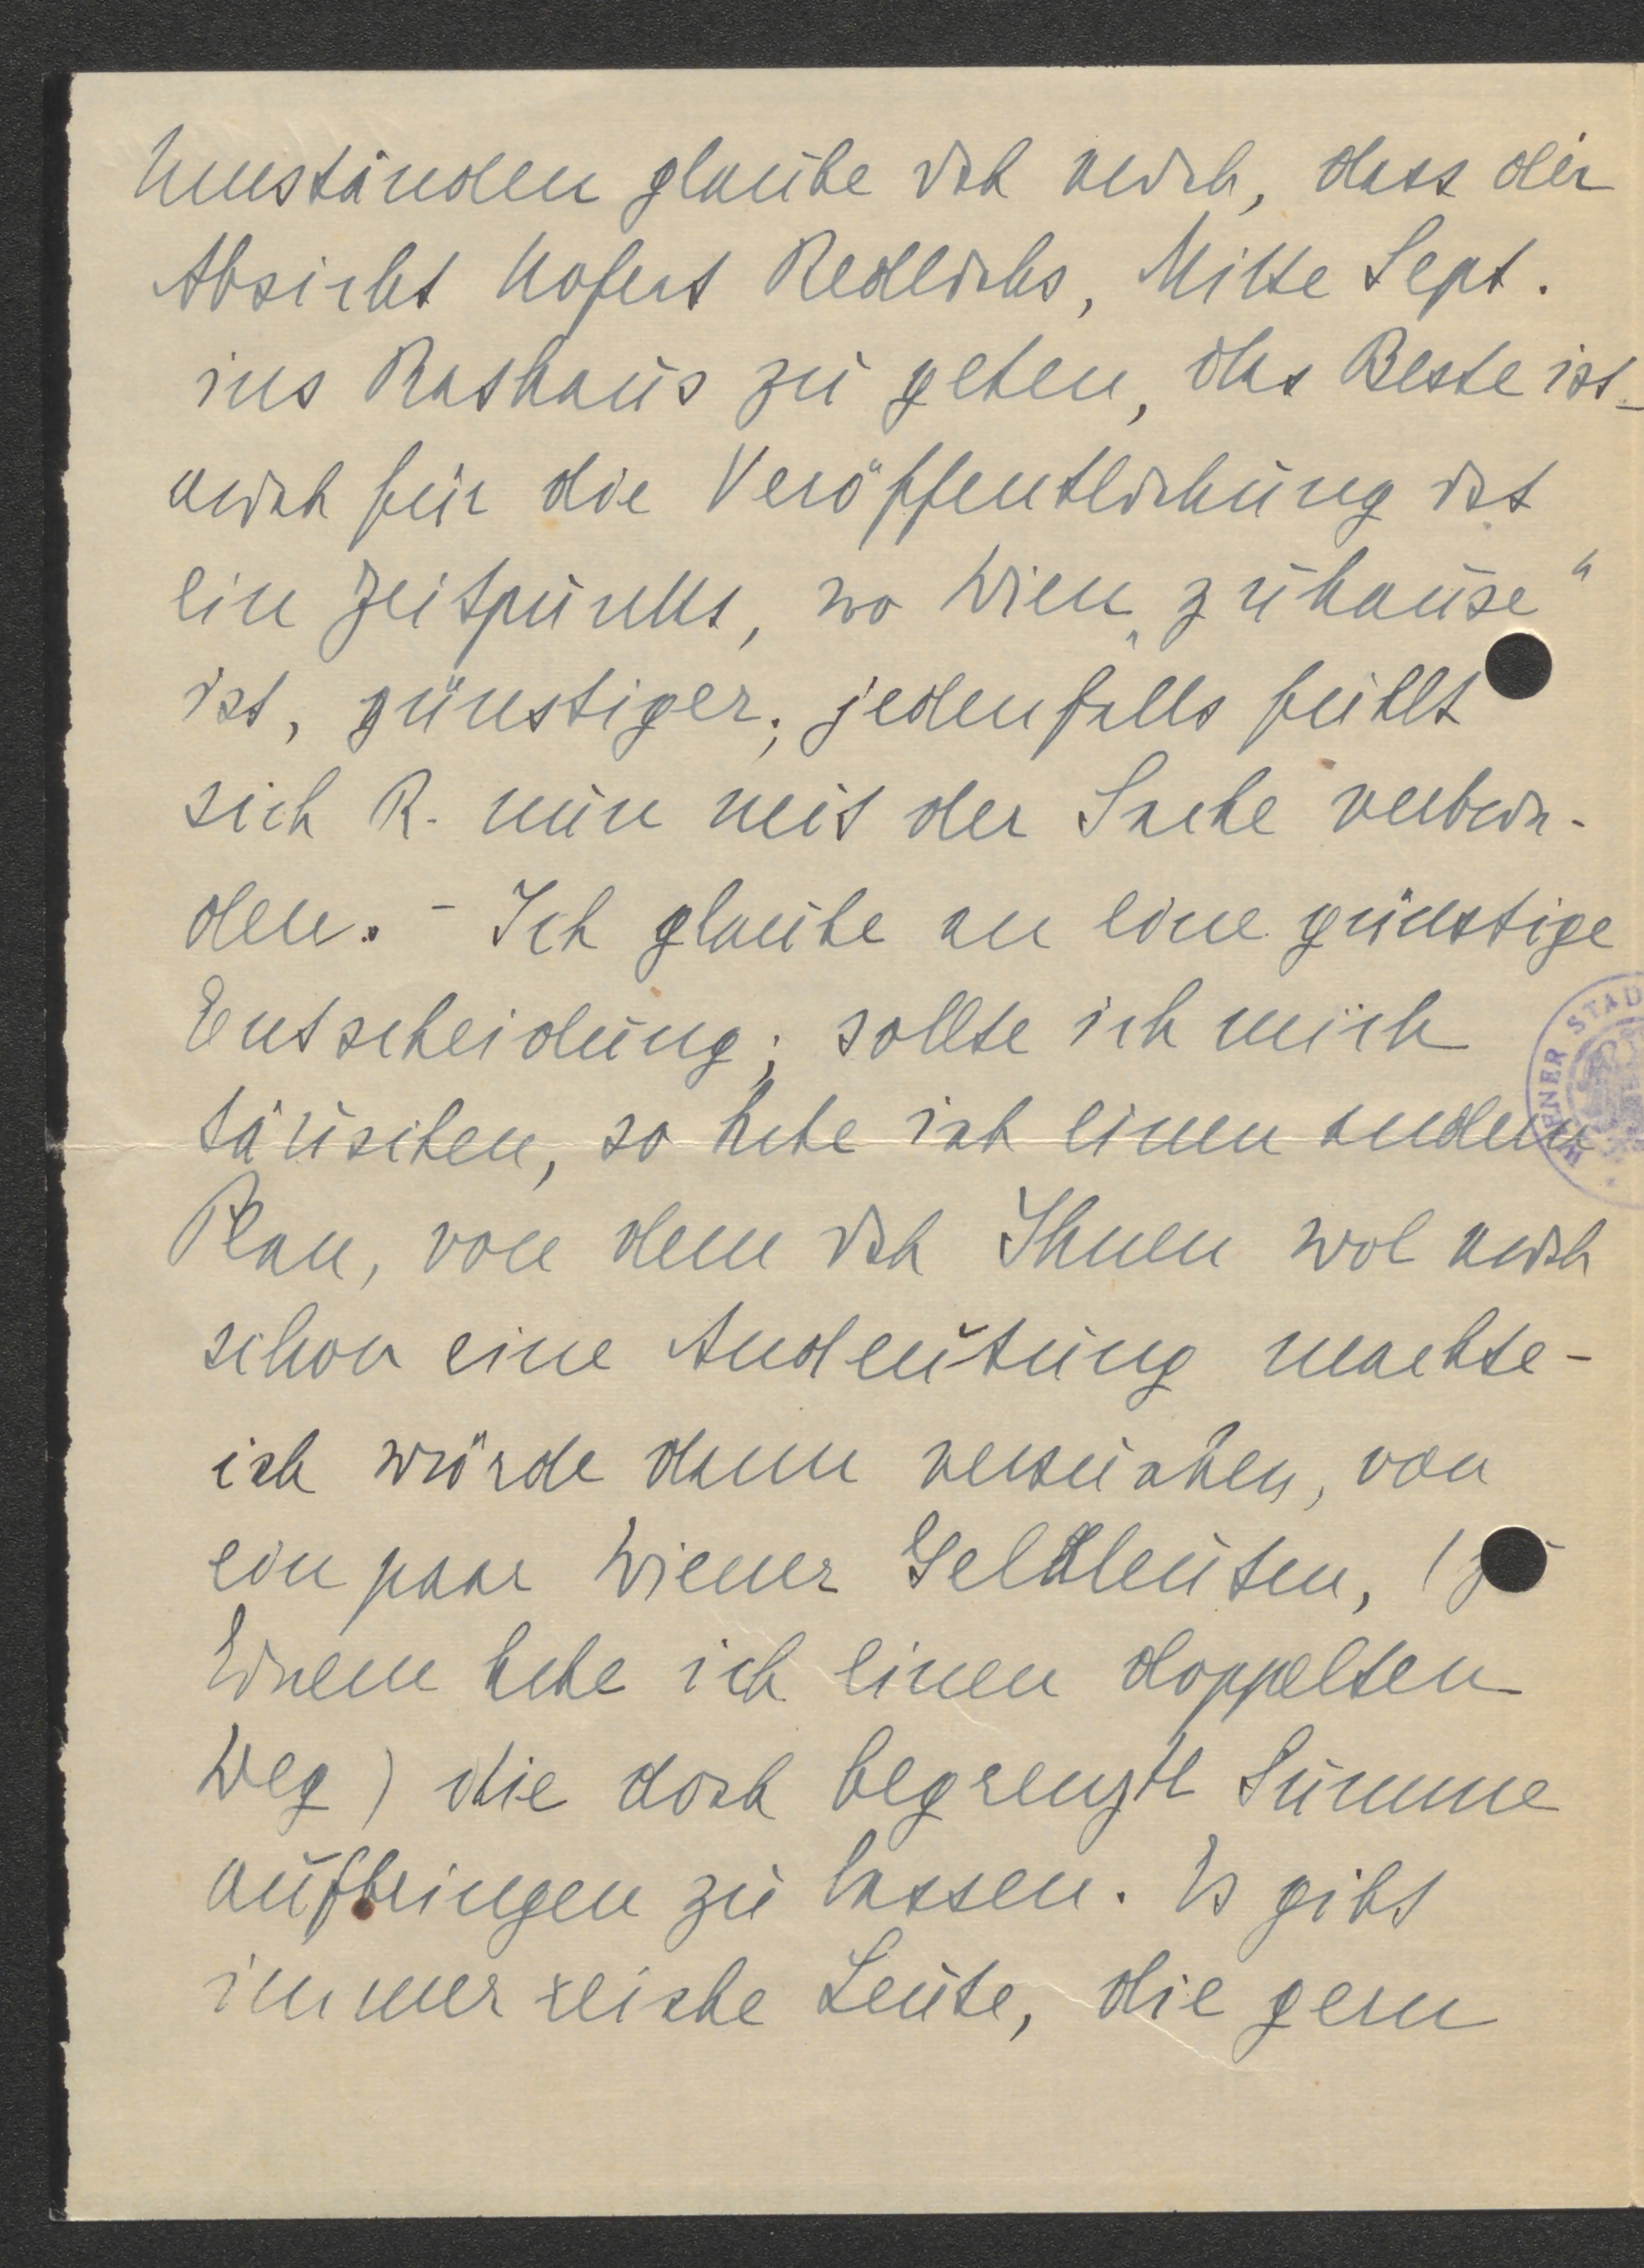 Umständen glaube ich auch, dass die
Absicht Hofrat Redlichs, Mitte Sept.
ins Rathaus zu gehen, das Beste ist –
auch für die Veröffentlichung ist
ein Zeitpunkt, wo Wien „zuhause“
ist, günstiger; jedenfalls fühlt
sich R. nun mit der Sache verbun-
den. – Ich glaube an eine günstige
Entscheidung; sollte ich mich
täuschen, so habe ich einen andern
Plan, von dem ich Ihnen wol auch
schon eine Andeutung machte –
ich würde dann versuchen, von
ein paar Wiener Geldleuten, (zu
Einem habe ich einen doppelten
Weg) die doch begrenzte Summe
aufbringen zu lassen. Es gibt
immer reiche Leute, die gern
WIENER STAD